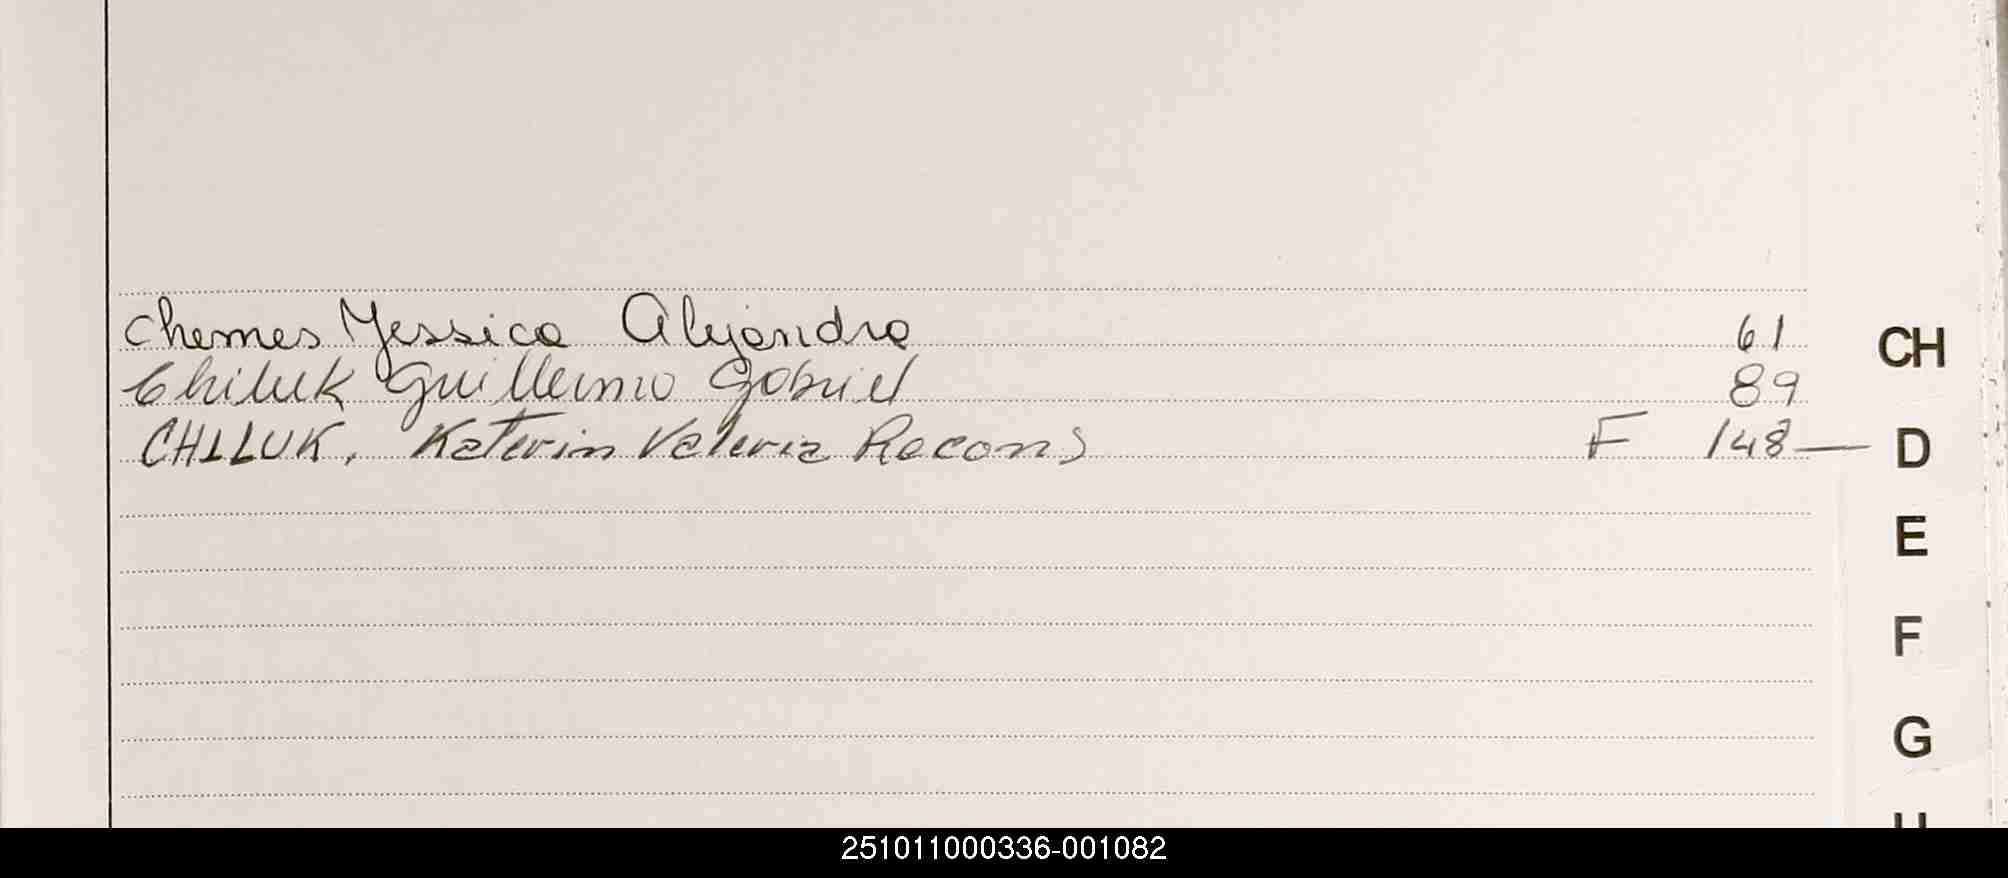 Chemes Yessica Alejandra 61
Chiluk Guillermo Gabriel 89
CHILUK, Katerin Valeria Recons F 148—
CH
D
E
F
G
H
251011000336-001082